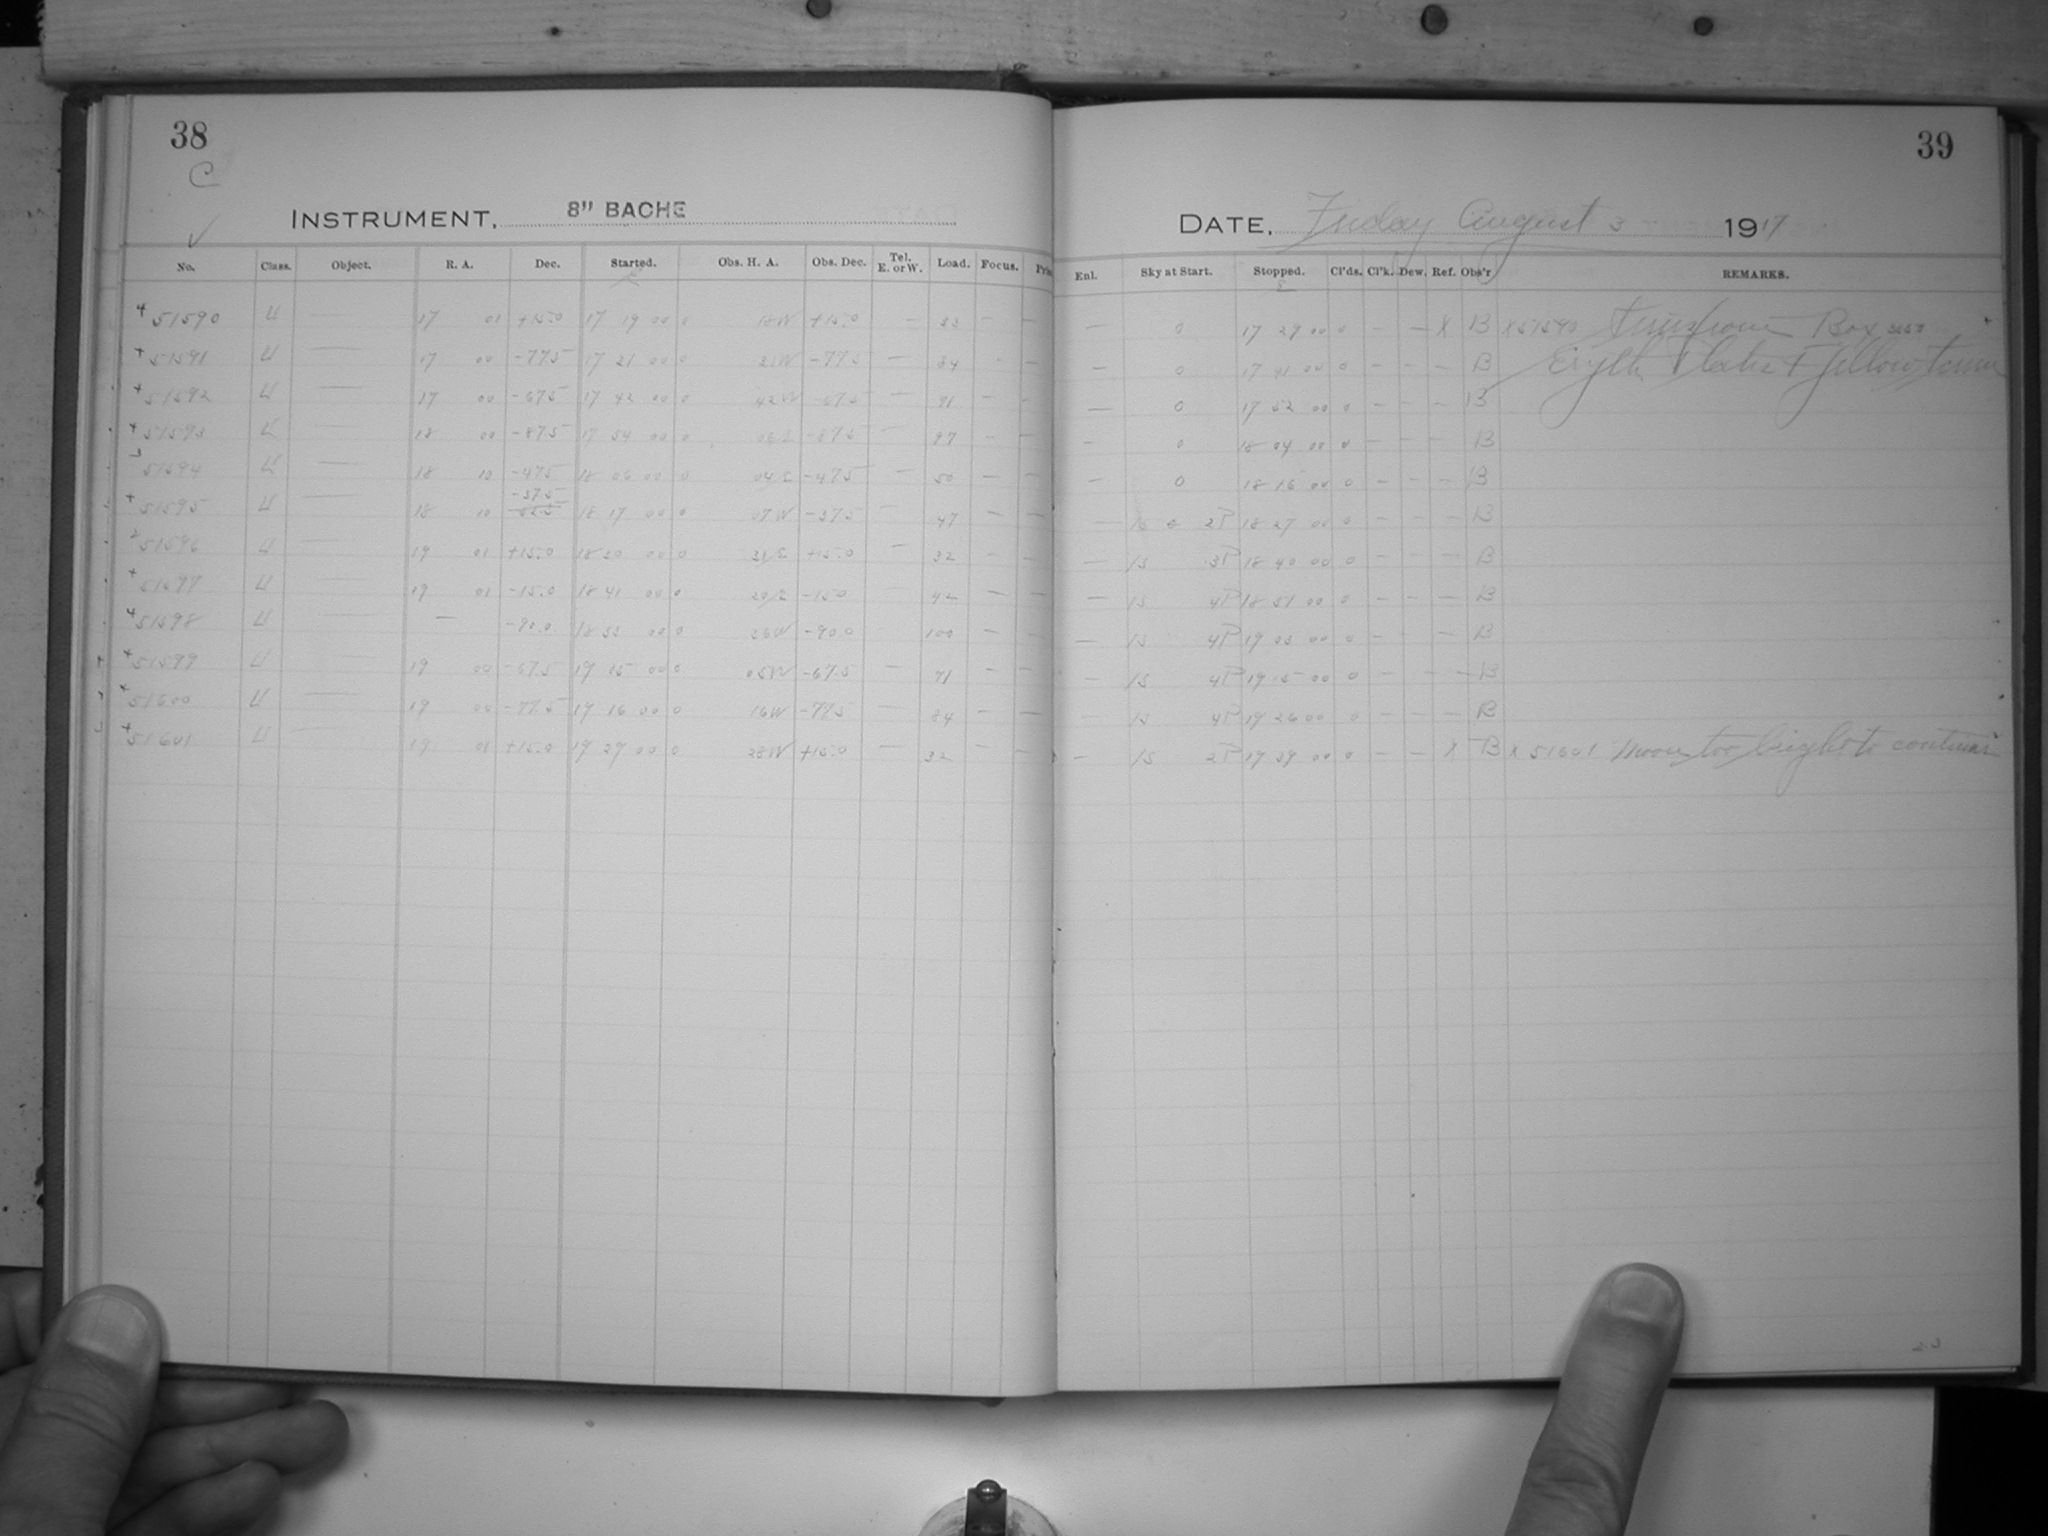 38
39
C
INSTRUMENT, 8" BACHE
DATE, Friday August 3 1917
No. Class. Object. R. A. Dec. Started. Obs. H. A. Obs. Dec. Tel. E. or W. Load. Focus. Enl. Sky at Start. Stopped. Cl'ds. Cl'k. Dew. Ref. Obs'r REMARKS.
51590 17 01 +15.0 17 19 00 0 18W +15.0 — — — 0 17 29 00 0 — — X B X 51590 Box
51591 17 00 -77.5 17 21 00 0 21W -77.5 — 84 — — 0 17 41 00 0 — — — B Plates + Yellow
51592 17 00 -67.5 17 42 00 0 42W -67.5 — 71 — — 0 17 52 00 0 — — — B
51593 18 00 -87.5 17 54 00 0 06E -87.5 — 97 — — — 0 18 04 00 0 — — — B
51594 18 10 -47.5 18 06 00 0 04E -47.5 — 50 — — — 0 18 16 00 0 — — — B
51595 18 10 -37.5 18 17 00 0 07W -37.5 — 47 — — — 2P 18 27 00 0 — — — B
51596 19 01 +15.0 18 30 00 0 31E +15.0 — 32 — — — 1S 3P 18 40 00 0 — — — B
51597 19 01 -15.0 18 41 00 0 20E -15.0 — — — 1S 4P 18 51 00 0 — — — B
51598 — -90.0 18 53 00 0 -90.0 100 — — — 1S 4P 19 03 00 0 — — — B
51599 19 00 -67.5 19 05 00 0 05W -67.5 — 71 — — — 1S 4P 19 15 00 0 — — — B
51600 19 00 -77.5 19 16 00 0 16W -77.5 — 84 — — — 1S 4P 19 26 00 0 — — — B
51601 19 01 +15.0 19 29 00 0 28W +15.0 — 32 — — 1S 2P 19 39 00 0 — — X B X 51601 Moon too bright to continue